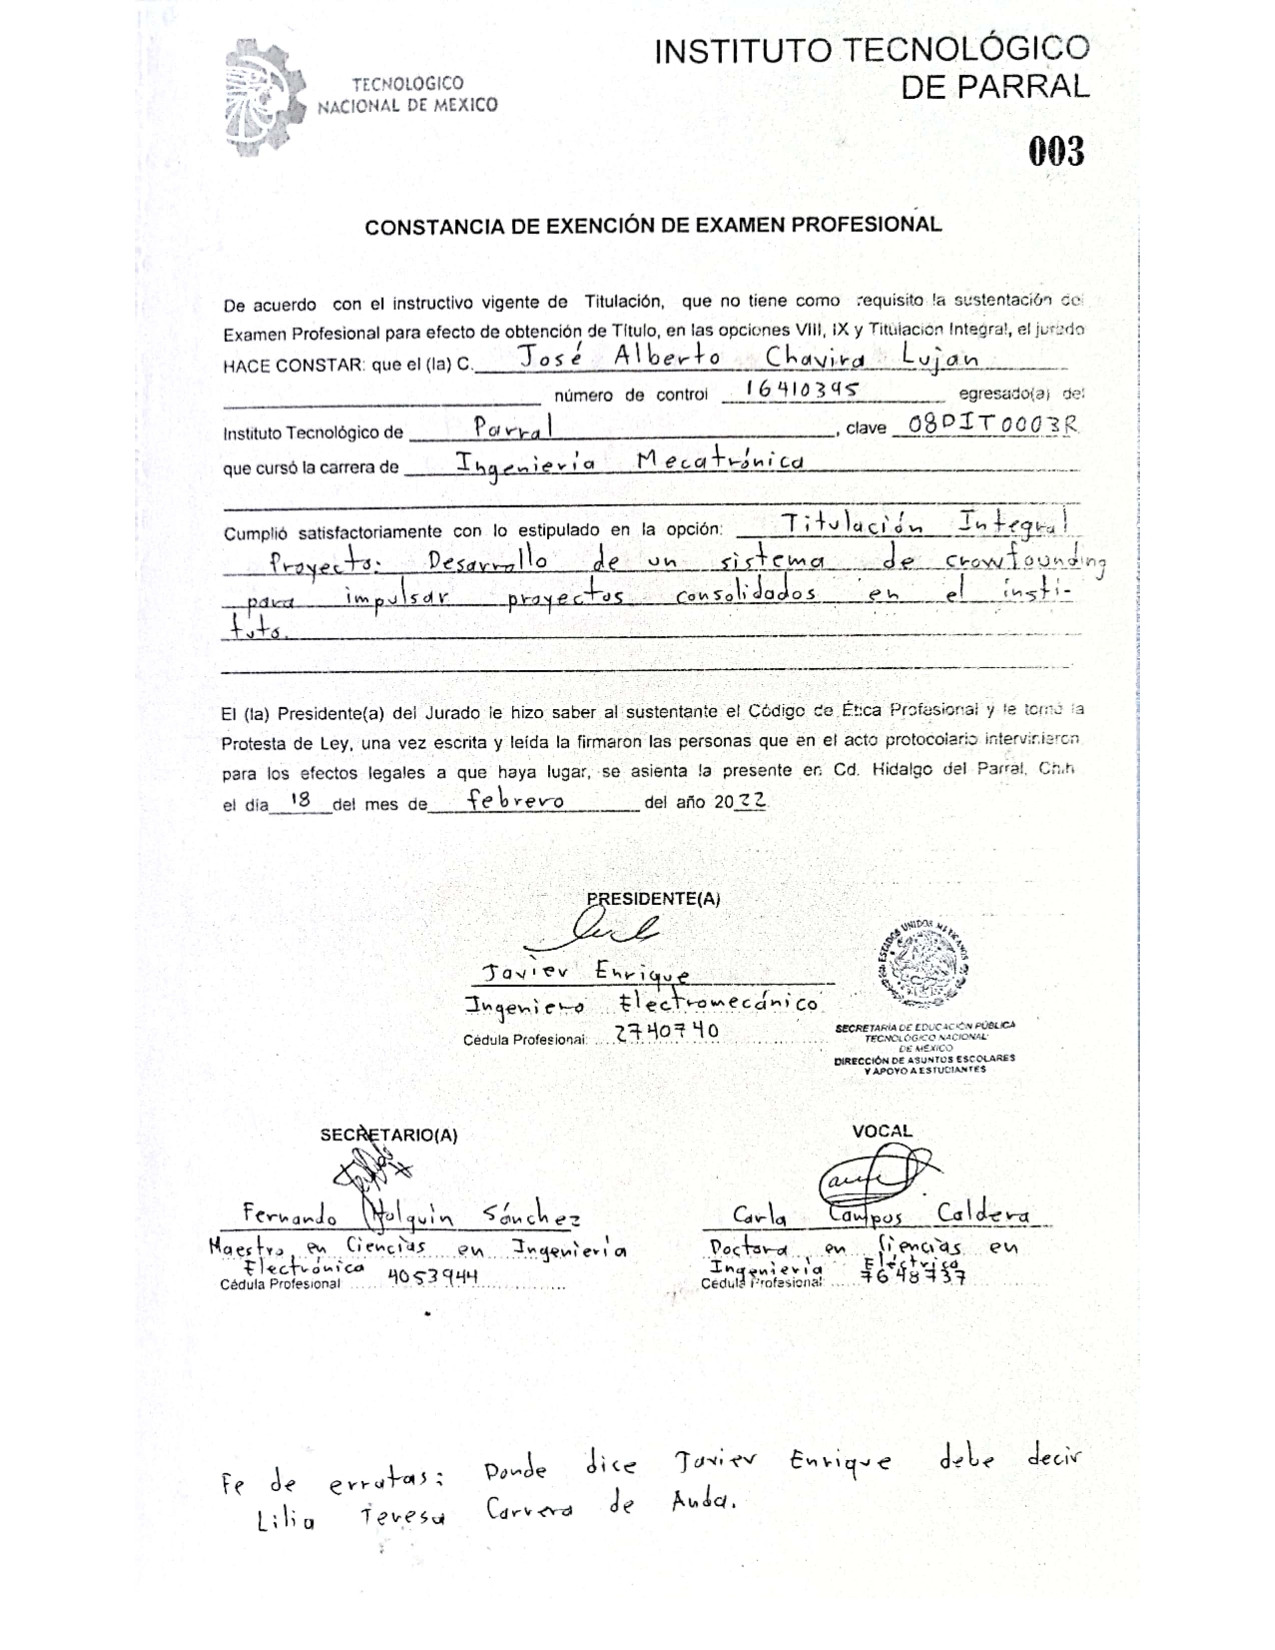 TECNOLOGICO
NACIONAL DE MEXICO
INSTITUTO TECNOLÓGICO
DE PARRAL
003
CONSTANCIA DE EXENCIÓN DE EXAMEN PROFESIONAL
De acuerdo con el instructivo vigente de Titulación, que no tiene como requisito la sustentación del
Examen Profesional para efecto de obtención de Título, en las opciones VIII, IX y Titulacion Integral, el jurado
HACE CONSTAR: que el (la) C. José Alberto Chavira Lujan
número de control 16410395 egresado(a) del
Instituto Tecnológico de Parral, clave 08DIT0003R
que cursó la carrera de Ingeniería Mecatrónica
Cumplió satisfactoriamente con lo estipulado en la opción: Titulación Integral
Proyecto: Desarrollo de un sistema de crowfounding
para impulsar proyectos consolidados en el insti-
tuto.
El (la) Presidente(a) del Jurado le hizo saber al sustentante el Código de Ética Profesional y le tomó la
Protesta de Ley, una vez escrita y leída la firmaron las personas que en el acto protocolario intervinieron
para los efectos legales a que haya lugar, se asienta la presente en Cd. Hidalgo del Parral, Chih
el día 18 del mes de febrero del año 2022
PRESIDENTE(A)
Javier Enrique
Ingeniero Electromecánico
Cédula Profesional: 2740740
ESTADOS UNIDOS MEXICANOS
SECRETARÍA DE EDUCACIÓN PÚBLICA
TECNOLÓGICO NACIONAL
DE MÉXICO
DIRECCIÓN DE ASUNTOS ESCOLARES
Y APOYO A ESTUDIANTES
SECRETARIO(A)
Fernando Holguin Sánchez
Maestro en Ciencias en Ingeniería
Electrónica
Cédula Profesional 4053944
VOCAL
Carla Campos Caldera
Doctora en Ciencias en
Ingeniería Eléctrica
Cédula Profesional: 7648737
Fe de erratas: Donde dice Javier Enrique debe decir
Lilia Teresa Carrera de Anda.